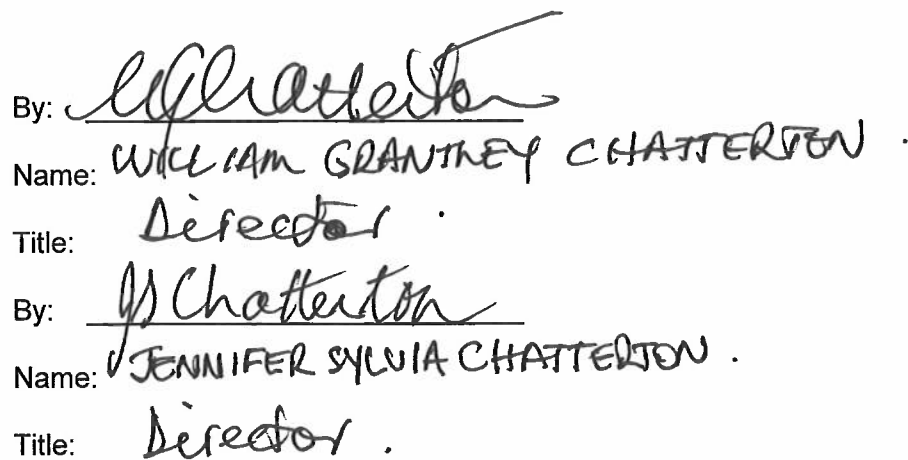 By: WGChatterton
Name: WILLIAM GRANTLEY CHATTERTON.
Title: Director.
By: JS Chatterton
Name: JENNIFER SYLVIA CHATTERTON.
Title: Director.